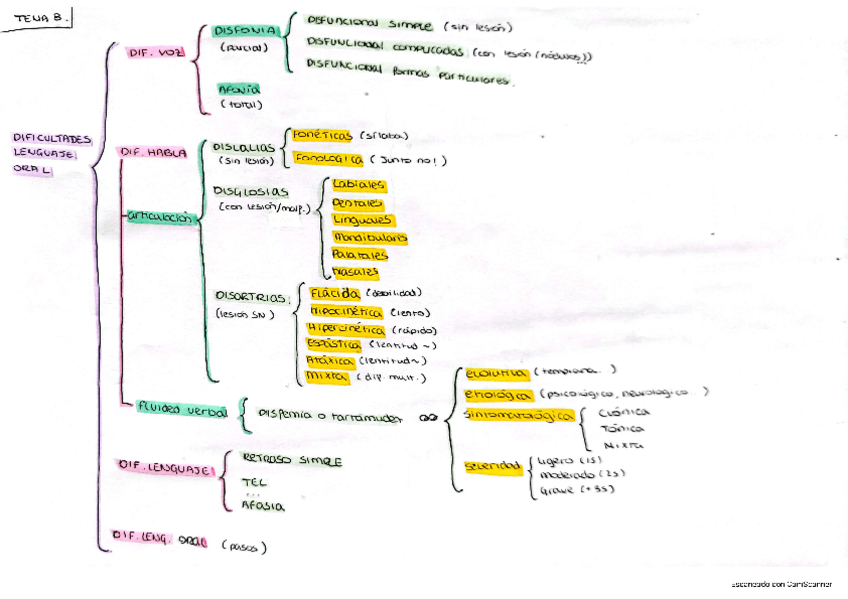 TEMA 8.
DIFICULTADES
LENGUAJE
ORAL
DIF. VOZ
DISFONIA
(parcial)
DISFUNCIONAL SIMPLE (sin lesión)
DISFUNCIONAL COMPLICADAS (con lesión (nódulos))
DISFUNCIONAL formas particulares.
AFONÍA
(total)
DIF. HABLA
articulación
DISLALIAS
(sin lesión)
FONÉTICAS (sílaba)
FONOLOGICA (Junto no!)
DISGLOSIAS
(con lesión/malf.)
Labiales
Dentales
Linguales
Mandibulares
Palatales
Nasales
DISARTRIAS
(lesión SN)
FLÁCIDA (debilidad)
Hipocinética (lento)
Hipercinética (rápido)
Espástica (lentitud ~)
Atáxica (lentitud ~)
MIXTA (dif. mult.)
fluidez verbal
DISFEMIA o tartamudez
evolutiva (temprana..)
etiológica (psicológico, neurologico...)
sintomatológica
Clónica
Tónica
Mixta
severidad
ligero (1s)
moderado (2s)
Grave (+3s)
DIF. LENGUAJE
RETRASO SIMPLE
TEL
...
AFASIA
DIF. LENG. ORAL (pasos)
Escaneado con CamScanner